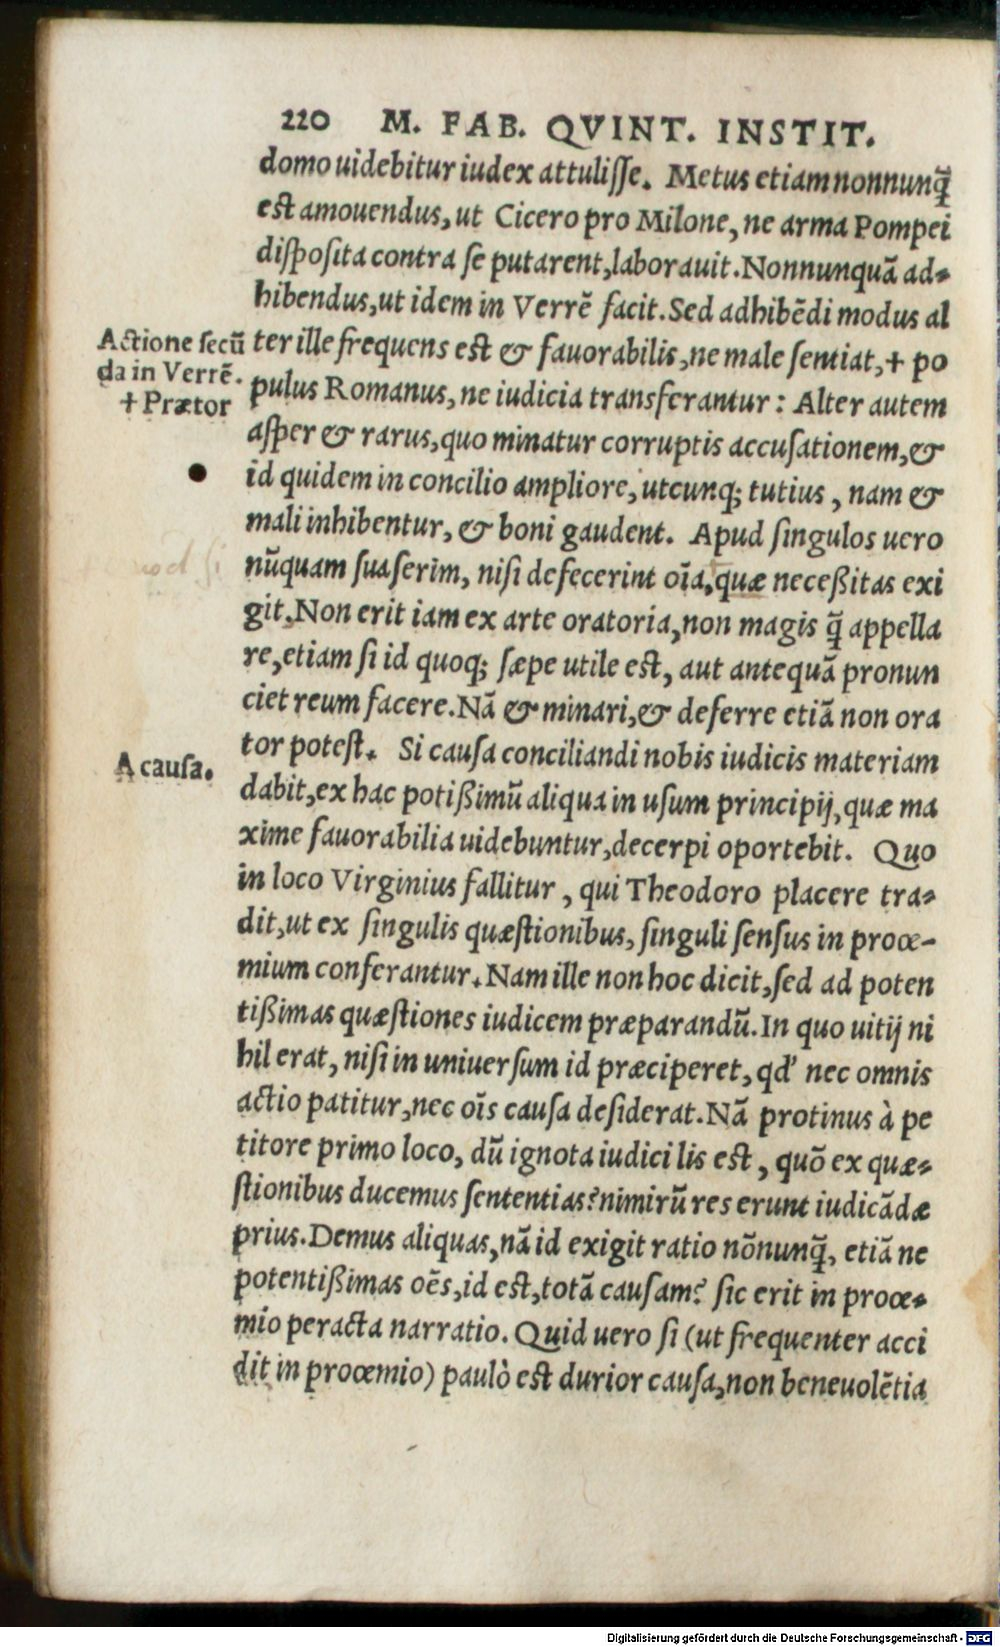 220 M. FAB. QVINT. INSTIT.
domo uidebitur iudex attulisse. Metus etiam nonnunq̃
est amouendus, ut Cicero pro Milone, ne arma Pompei
disposita contra se putarent, laborauit. Nonnunquā ad-
hibendus, ut idem in Verrē facit. Sed adhibēdi modus al
Actione secū
da in Verrē.
+ Prætor
ter ille frequens est & fauorabilis, ne male sentiat, + po
pulus Romanus, ne iudicia transferantur: Alter autem
asper & rarus, quo minatur corruptis accusationem, &
id quidem in concilio ampliore, utcunq; tutius, nam &
mali inhibentur, & boni gaudent. Apud singulos uero
nūquam suaserim, nisi defecerint oīa, quæ neceßitas exi
git. Non erit iam ex arte oratoria, non magis q̃ appella
re, etiam si id quoq; sæpe utile est, aut antequā pronun
ciet reum facere. Nā & minari, & deferre etiā non ora
tor potest. Si causa conciliandi nobis iudicis materiam
A causa.
dabit, ex hac potißimū aliqua in usum principij, quæ ma
xime fauorabilia uidebuntur, decerpi oportebit. Quo
in loco Virginius fallitur, qui Theodoro placere tra-
dit, ut ex singulis quæstionibus, singuli sensus in proœ-
mium conferantur. Nam ille non hoc dicit, sed ad poten
tißimas quæstiones iudicem præparandū. In quo uitij ni
hil erat, nisi in uniuersum id præciperet, qd' nec omnis
actio patitur, nec oīs causa desiderat. Nā protinus à pe
titore primo loco, dū ignota iudici lis est, quō ex quæ-
stionibus ducemus sententias? nimirū res erunt iudicādæ
prius. Demus aliquas, nā id exigit ratio nōnunq̃, etiā ne
potentißimas oēs, id est, totā causam? sic erit in proœ-
mio peracta narratio. Quid uero si (ut frequenter acci
dit in proœmio) paulò est durior causa, non beneuolētia
Digitalisierung gefördert durch die Deutsche Forschungsgemeinschaft - DFG